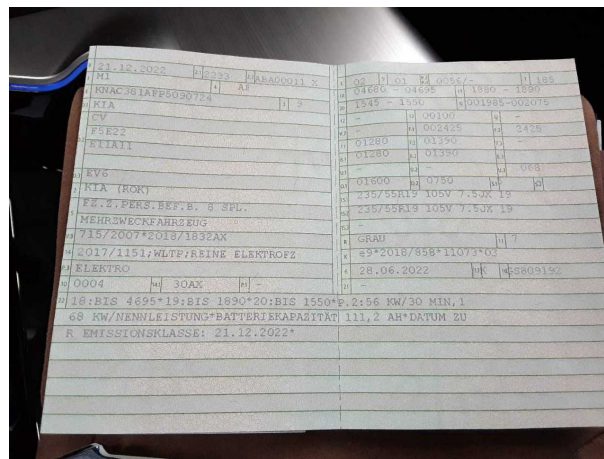 21.12.2022 2.1 2233 2.2 ABA00011 X
M1 4 AB
KNAC381AFP5090724 3 9
KIA
CV
F5E22
E11A11
EV6
KIA (ROK)
FZ.Z.PERS.BEF.B. 8 SPL.
MEHRZWECKFAHRZEUG
715/2007*2018/1832AX
2017/1151;WLTP;REINE ELEKTROFZ
ELEKTRO
0004 30AX -
02 01 0056/- 185
04680 - 04695 1880 - 1890
1545 - 1550 001985-002075
- 00100 -
- 002425 2425
01280 01390 -
01280 01390 -
- - 068
01600 0750
235/55R19 105V 7.5JX 19
235/55R19 105V 7.5JX 19
-
GRAU 7
e9*2018/858*11073*03
28.06.2022 K GS809192
-
22 18:BIS 4695*19:BIS 1890*20:BIS 1550*P.2:56 KW/30 MIN,1
68 KW/NENNLEISTUNG*BATTERIEKAPAZITÄT 111,2 AH*DATUM ZU
R EMISSIONSKLASSE: 21.12.2022*